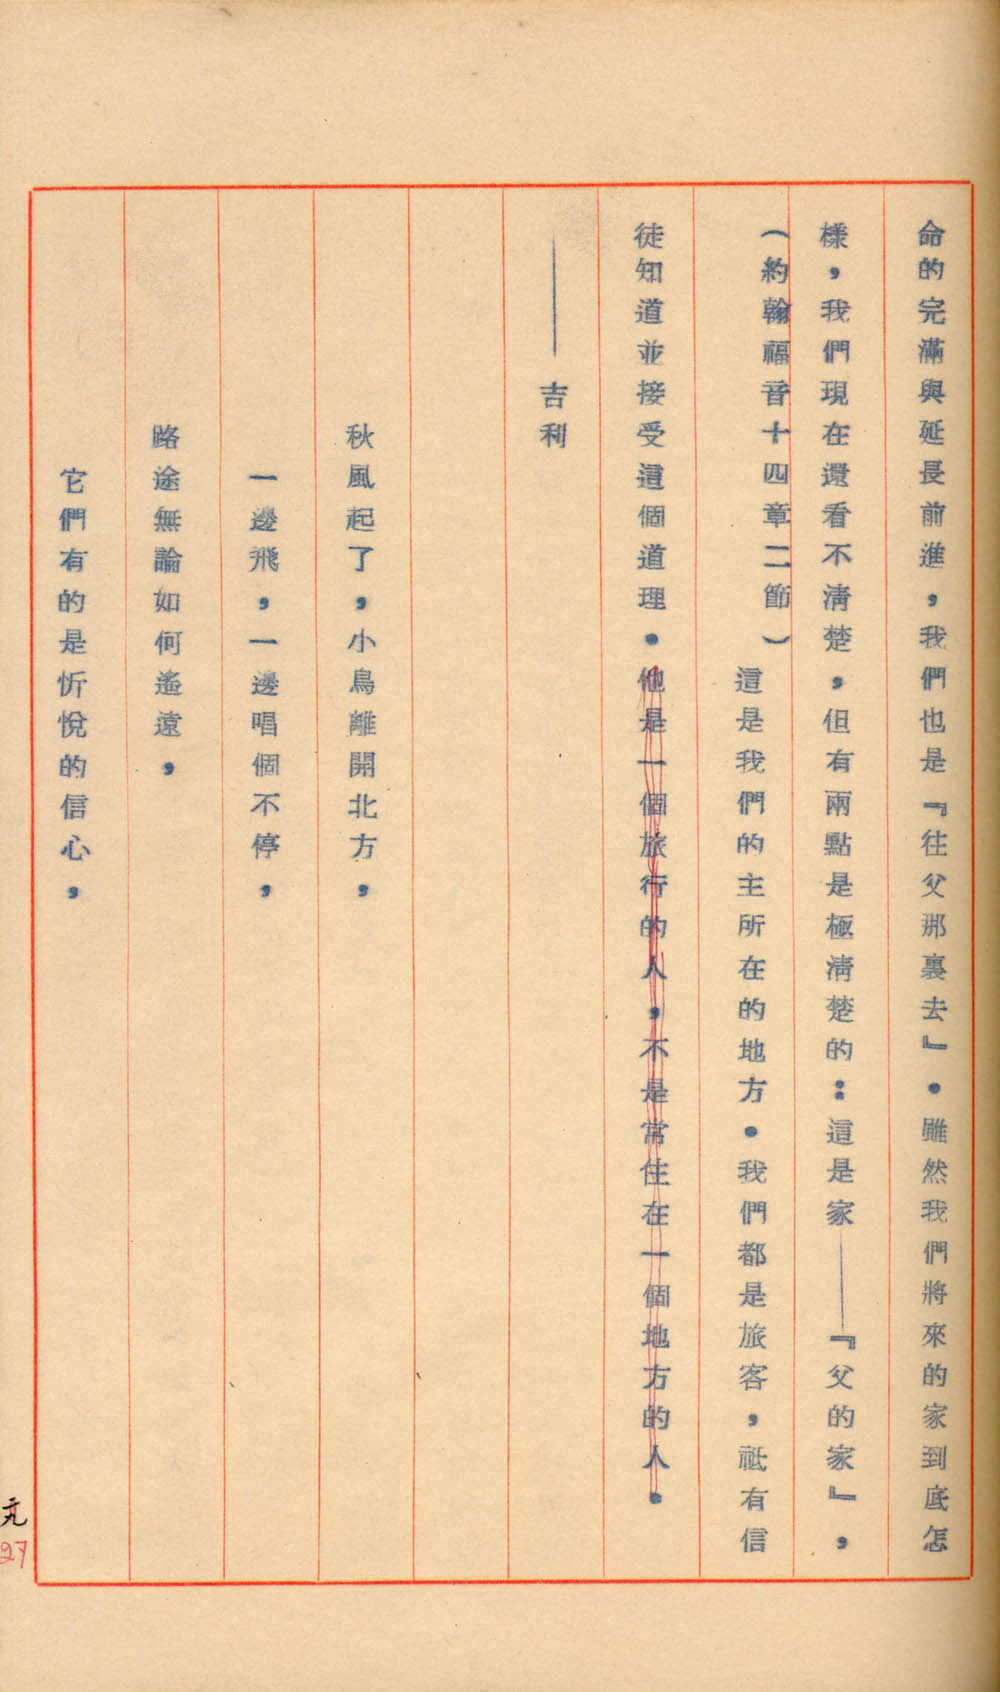 命的完滿與延長前進，我們也是『往父那裏去』。雖然我們將來的家到底怎
樣，我們現在還看不清楚，但有兩點是極清楚的：這是家——『父的家』，
（約翰福音十四章二節）
這是我們的主所在的地方。我們都是旅客，祗有信
徒知道並接受這個道理。他是一個旅行的人，不是常住在一個地方的人。
——吉利
秋風起了，小鳥離開北方，
一邊飛，一邊唱個不停，
路途無論如何遙遠，
它們有的是忻悅的信心，
27